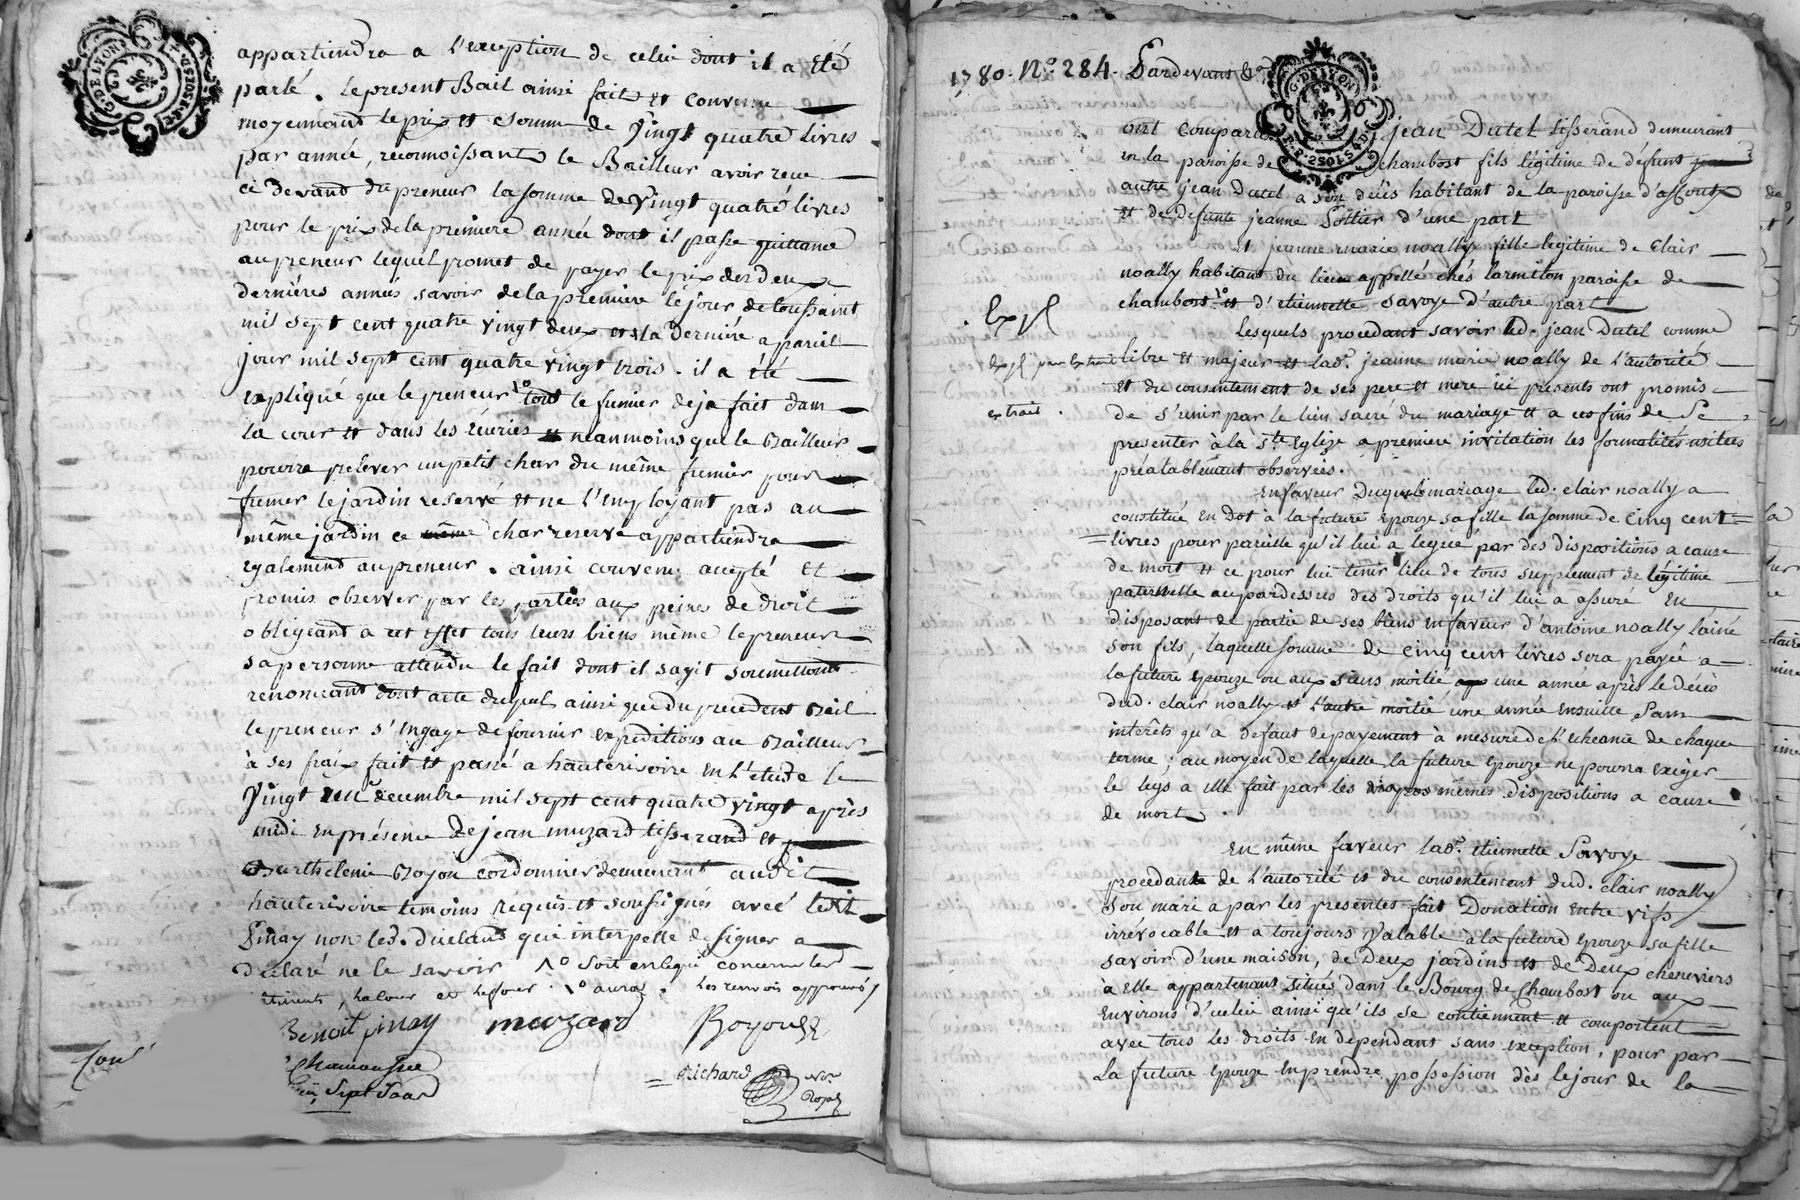 appartiendra a l'exception de celui dont il a été
parlé. le present Bail ainsi fait et convenu
moyennant le prix et somme de Vingt quatre livres
par année, reconnoissant le Bailleur avoir reçu
ci devant du preneur la somme de Vingt quatre livres
pour le prix de la premiere année dont il passe quittance
au preneur lequel promet de payer le prix des deux
dernières années savoir de la premiere le jour de toussaint
mil sept cent quatre vingt deux et la derniere a pareil
jour mil sept cent quatre vingt trois. il a été
expliqué que le preneur tout le fumier deja fait dans
la cour et dans les écuries et neanmoins que le Bailleur
pourra prelever un petit char du même fumier pour
fumer le jardin reservé et ne l'employant pas au
même jardin ce même char reservé appartiendra
egalement au preneur. ainsi convenu accepté et
promis observer par les parties aux peines de droit
obligeant a cet effet tous leurs biens même le preneur
sa personne attendu le fait dont il sagit soumettant
renonceant dont acte duquel ainsi que du precedent Bail
le preneur s'engage de fournir expeditions au Bailleur
à ses fraix fait et passé a hauterivoire en l'etude le
Vingt decembre mil sept cent quatre vingt après
midi en présence de jean muzard tisserand et
Barthelemi Boyon cordonnier demeurant audit
hauterivoire temoins requis et soussignés avec ledit
Pinay non led. duclaud qui interpellé de signer a
declaré ne le savoir 1° soit
les renvois approuvés
Benoit pinay muzard Boyon
Chamousset
Richard Nore
Royal
G. DE LYON
1780. N° 284. Pardevant &a
ont comparu jean Dutel tisserand demeurant
en la paroisse de chambost fils légitime de défunt
autre jean Dutel a son deces habitant de la paroisse d'affoux
et de defunte jeanne Pottier d'une part
et jeanne marie noally fille legitime de Clair
noally habitant du lieu appellé chés larmilon paroisse de
chambost et d'etiennette savoye d'autre part
Expé
lesquels procedant savoir led. jean Dutel comme
libre et majeur et lade. jeanne marie noally de l'autorité
et du consentement de ses pere et mere ici presents ont promis
extrait.
de s'unir par le lien sacré du mariage et a ces fins de se
presenter à la Ste Eglise a premiere invitation les formalités usitées
préalablement observées.
en faveur duquel mariage led. clair noally a
constitué en dot à la future epouze sa fille la somme de Cinq cent
livres pour pareille qu'il lui a legué par des dispositions a cause
de mort et ce pour lui tenir lieu de tous supplement de légitime
paternelle aupardessus des droits qu'il lui a assuré en
disposant de partie de ses biens en faveur d'antoine noally l'ainé
son fils, laquelle somme de Cinq cent livres sera payée a
la future epouze ou aux siens moitié une année après le décés
dud. clair noally et l'autre moitié une année ensuitte sans
interêts qu'a defaut de payement à mesure de l'echeance de chaque
terme; au moyen de laquelle la future epouze ne pourra exiger
le legs a elle fait par les mêmes dispositions a cause
de mort.
en même faveur lade. etiennette Savoye
procedante de l'autorité et du consentement dud. clair noally
son mari a par les presentes fait Donation entre vifs
irrévocable et a toujours valable à la future epouze sa fille
savoir d'une maison, de deux jardins et de deux cheneviers
à elle appartenant situés dans le Bourg de Chambost ou aux
environs d'icelui ainsi qu'ils se contiennent et comportent
avec tous les droits en dependant sans exception, pour par
la future epouze en prendre possession dès le jour de la